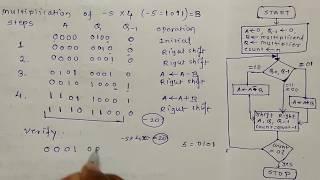 multiplication of -5 x 4 (-5=1011)=B
steps A Q Q-1 operation
0000 0100 0 Initial
1. 0000 0010 0 Right shift
2. 0000 0001 0 Right shift
3. 0101 0001 0 A ← A-B
0010 1000 1 Right shift
4. A ← A+B
1110 1100 0 Right shift
-20
Verify
-5x4 = -20
0001 00
5=0101
START
A←0, Q-1←0
B←multiplicand
Q←multiplier
count←n
=10
=01
Q0, Q-1
A←A-B
A←A+B
Shift Right
A, Q, Q-1
count=count-1
count
=0?
No
Yes
STOP